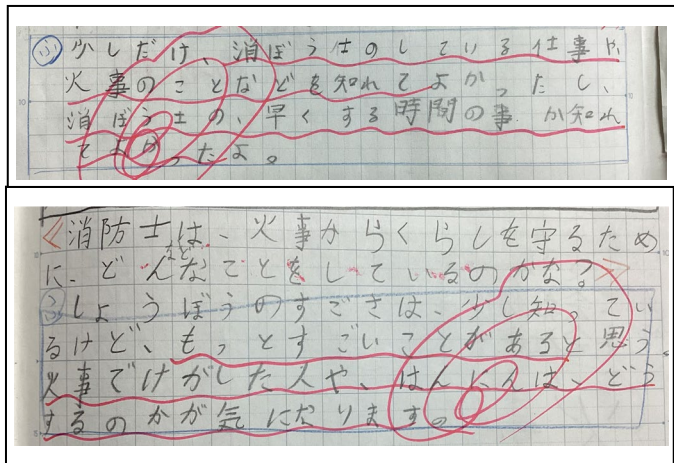 ふ 少しだけ、消ぼう仕のしている仕事や、
火事のことなどを知れてよかったし、
消ぼう士の、早くする時間の事が知れ
てよかったよ。
<消防士は、火事からくらしを守るため
に、どんなことをしているのかな?>
ふしょうぼうのすごさは、少し知ってい
るけど、もっとすごいことがあると思う
火事でけがした人や、はんにんは、どう
するのかが気になります。